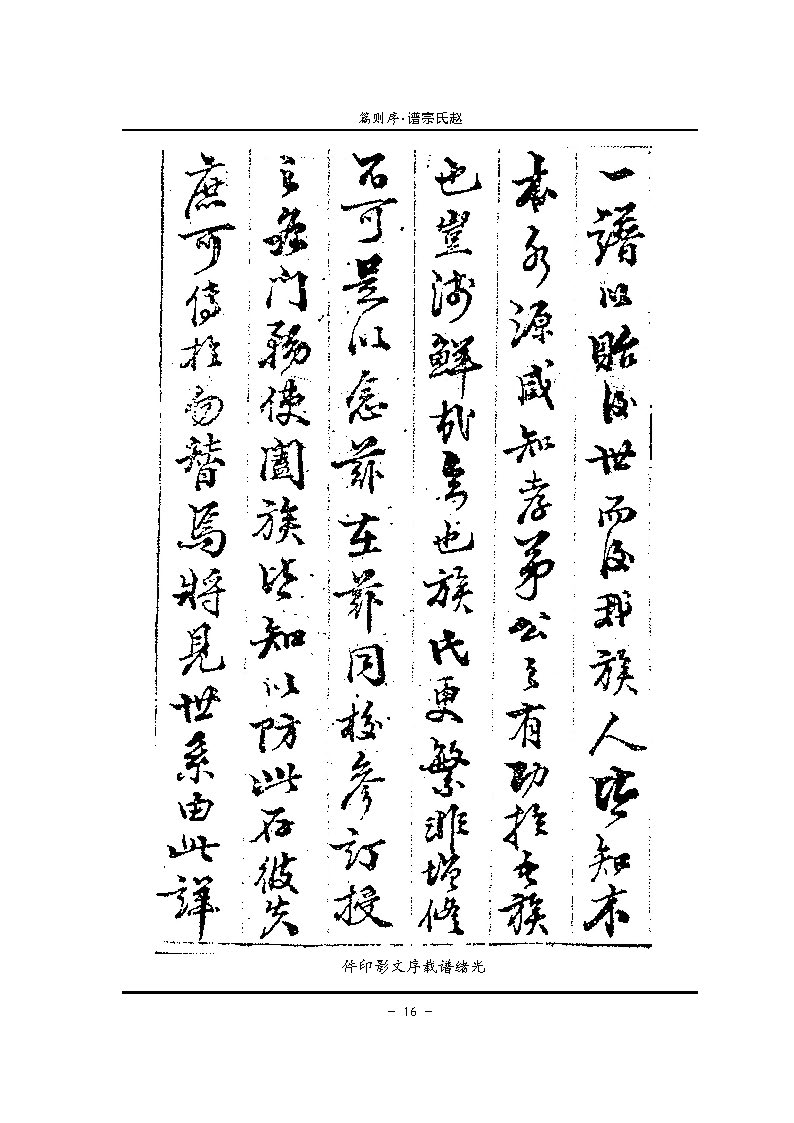 赵氏宗谱·序则篇
一譜以貽後世而後我族人皆知木
本水源咸知孝弟公之有助於吾族
也豈淺鮮哉也族氏更繁非增修
不可是以念茲在茲同校參訂授
之門務使闔族皆知以防此存彼失
庶可傳於勿替焉將見世系由此詳
光绪谱载序文影印件
- 16 -